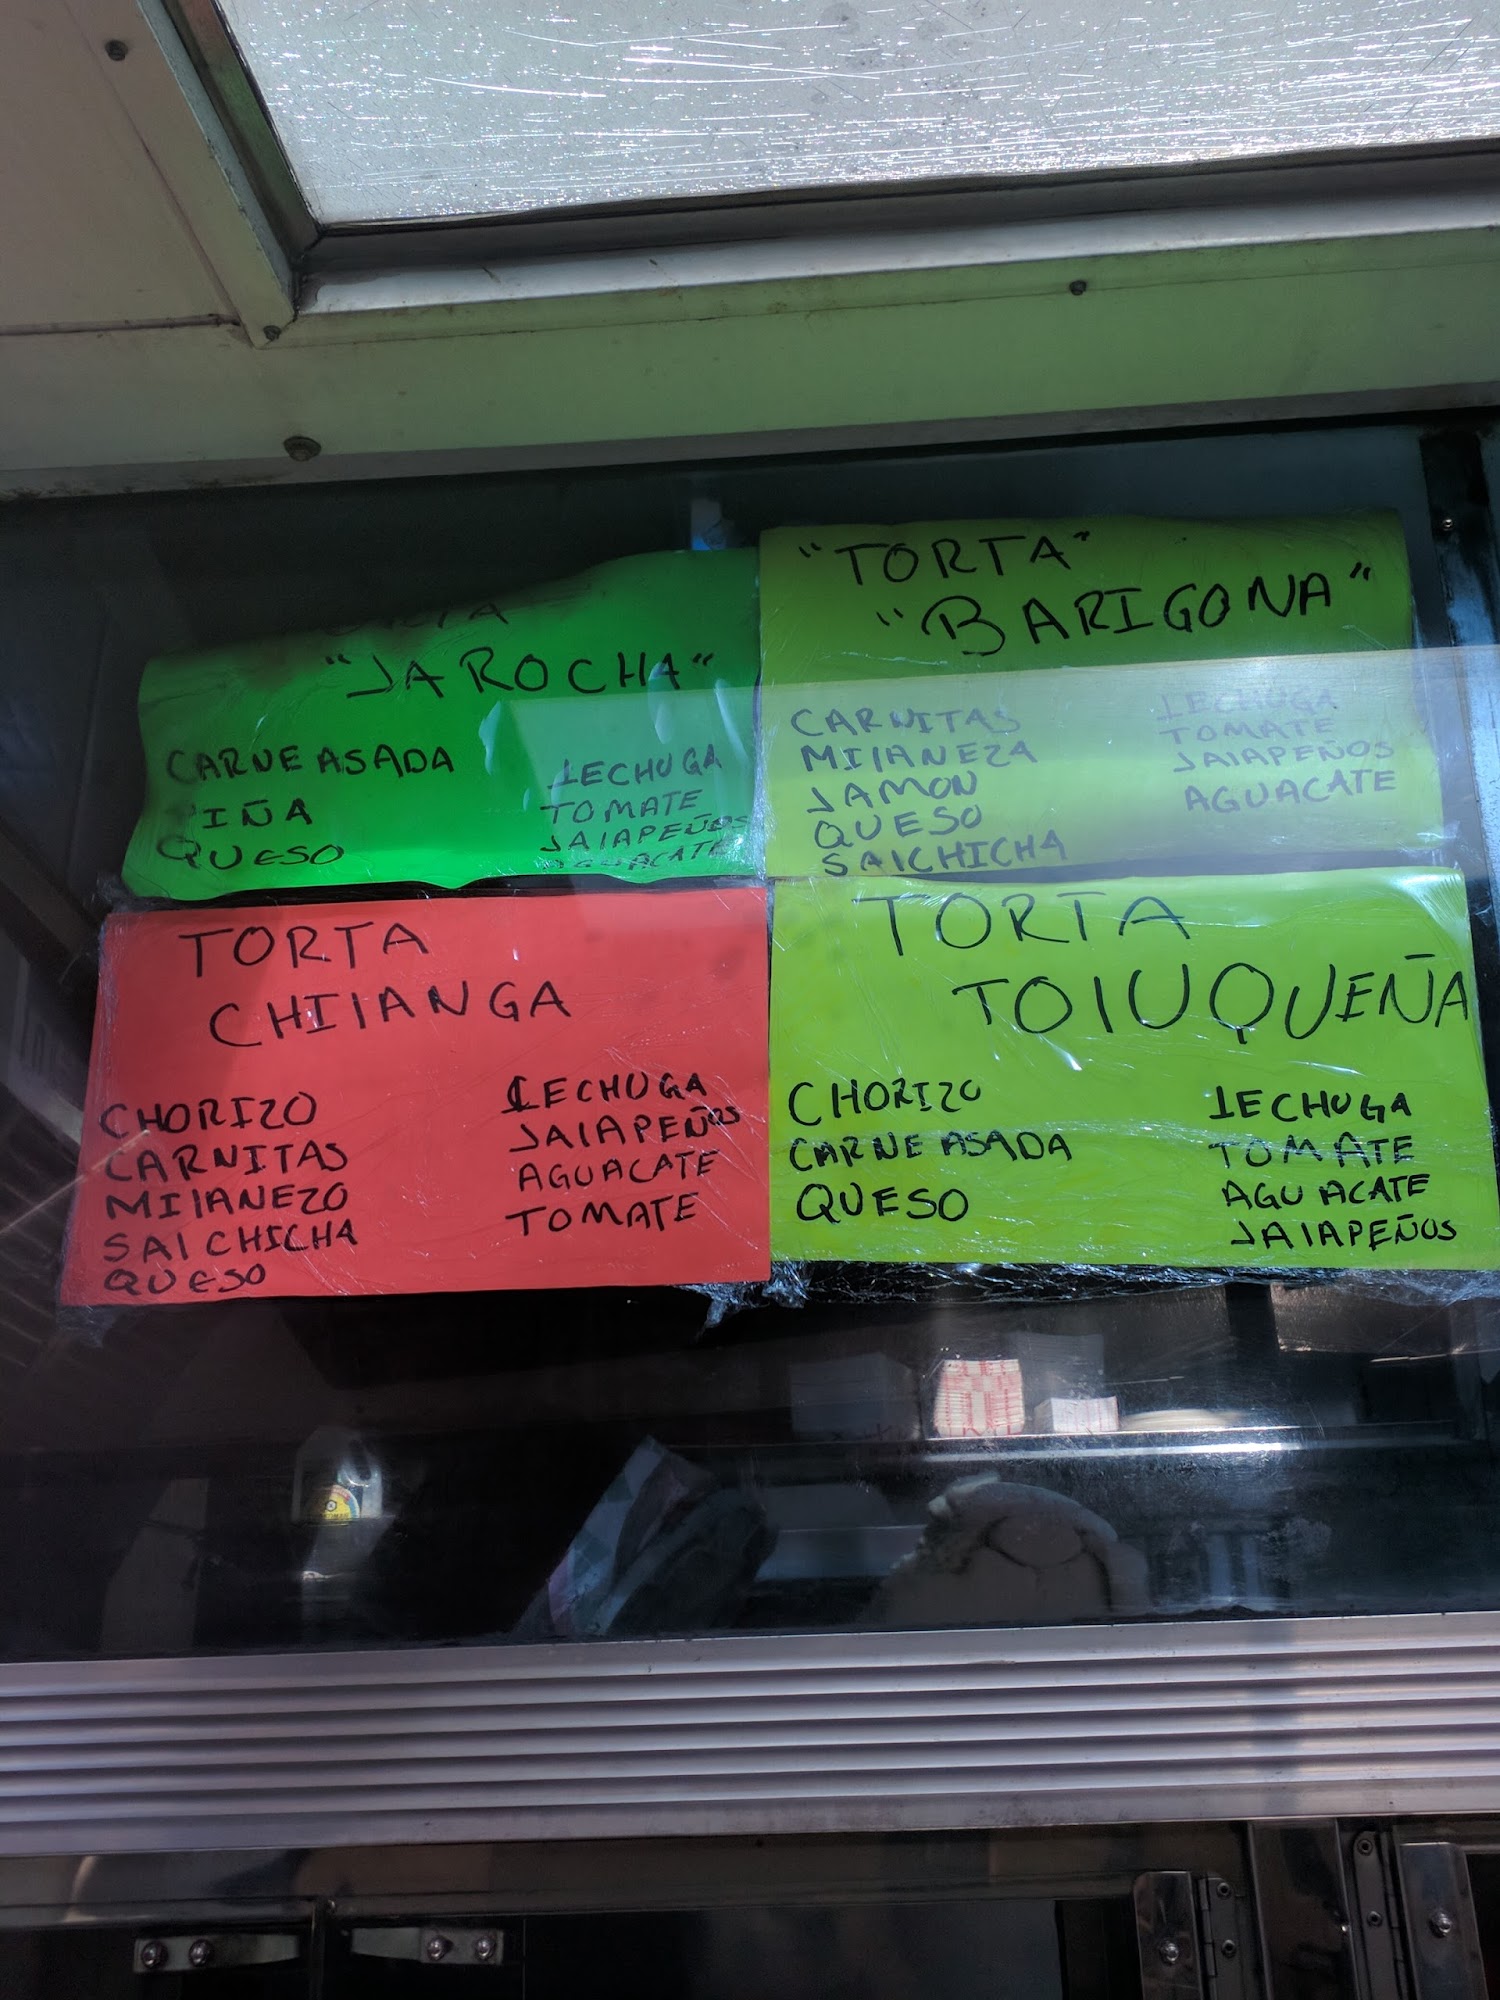 TORTA
"JAROCHA"
CARNE ASADA
PIÑA
QUESO
LECHUGA
TOMATE
JALAPEÑOS
AGUACATE
"TORTA"
"BARIGONA"
CARNITAS
MILANEZA
JAMON
QUESO
SALCHICHA
LECHUGA
TOMATE
JALAPEÑOS
AGUACATE
TORTA
CHILANGA
CHORIZO
CARNITAS
MILANEZO
SALCHICHA
QUESO
LECHUGA
JALAPEÑOS
AGUACATE
TOMATE
TORTA
TOLUQUEÑA
CHORIZO
CARNE ASADA
QUESO
LECHUGA
TOMATE
AGUACATE
JALAPEÑOS